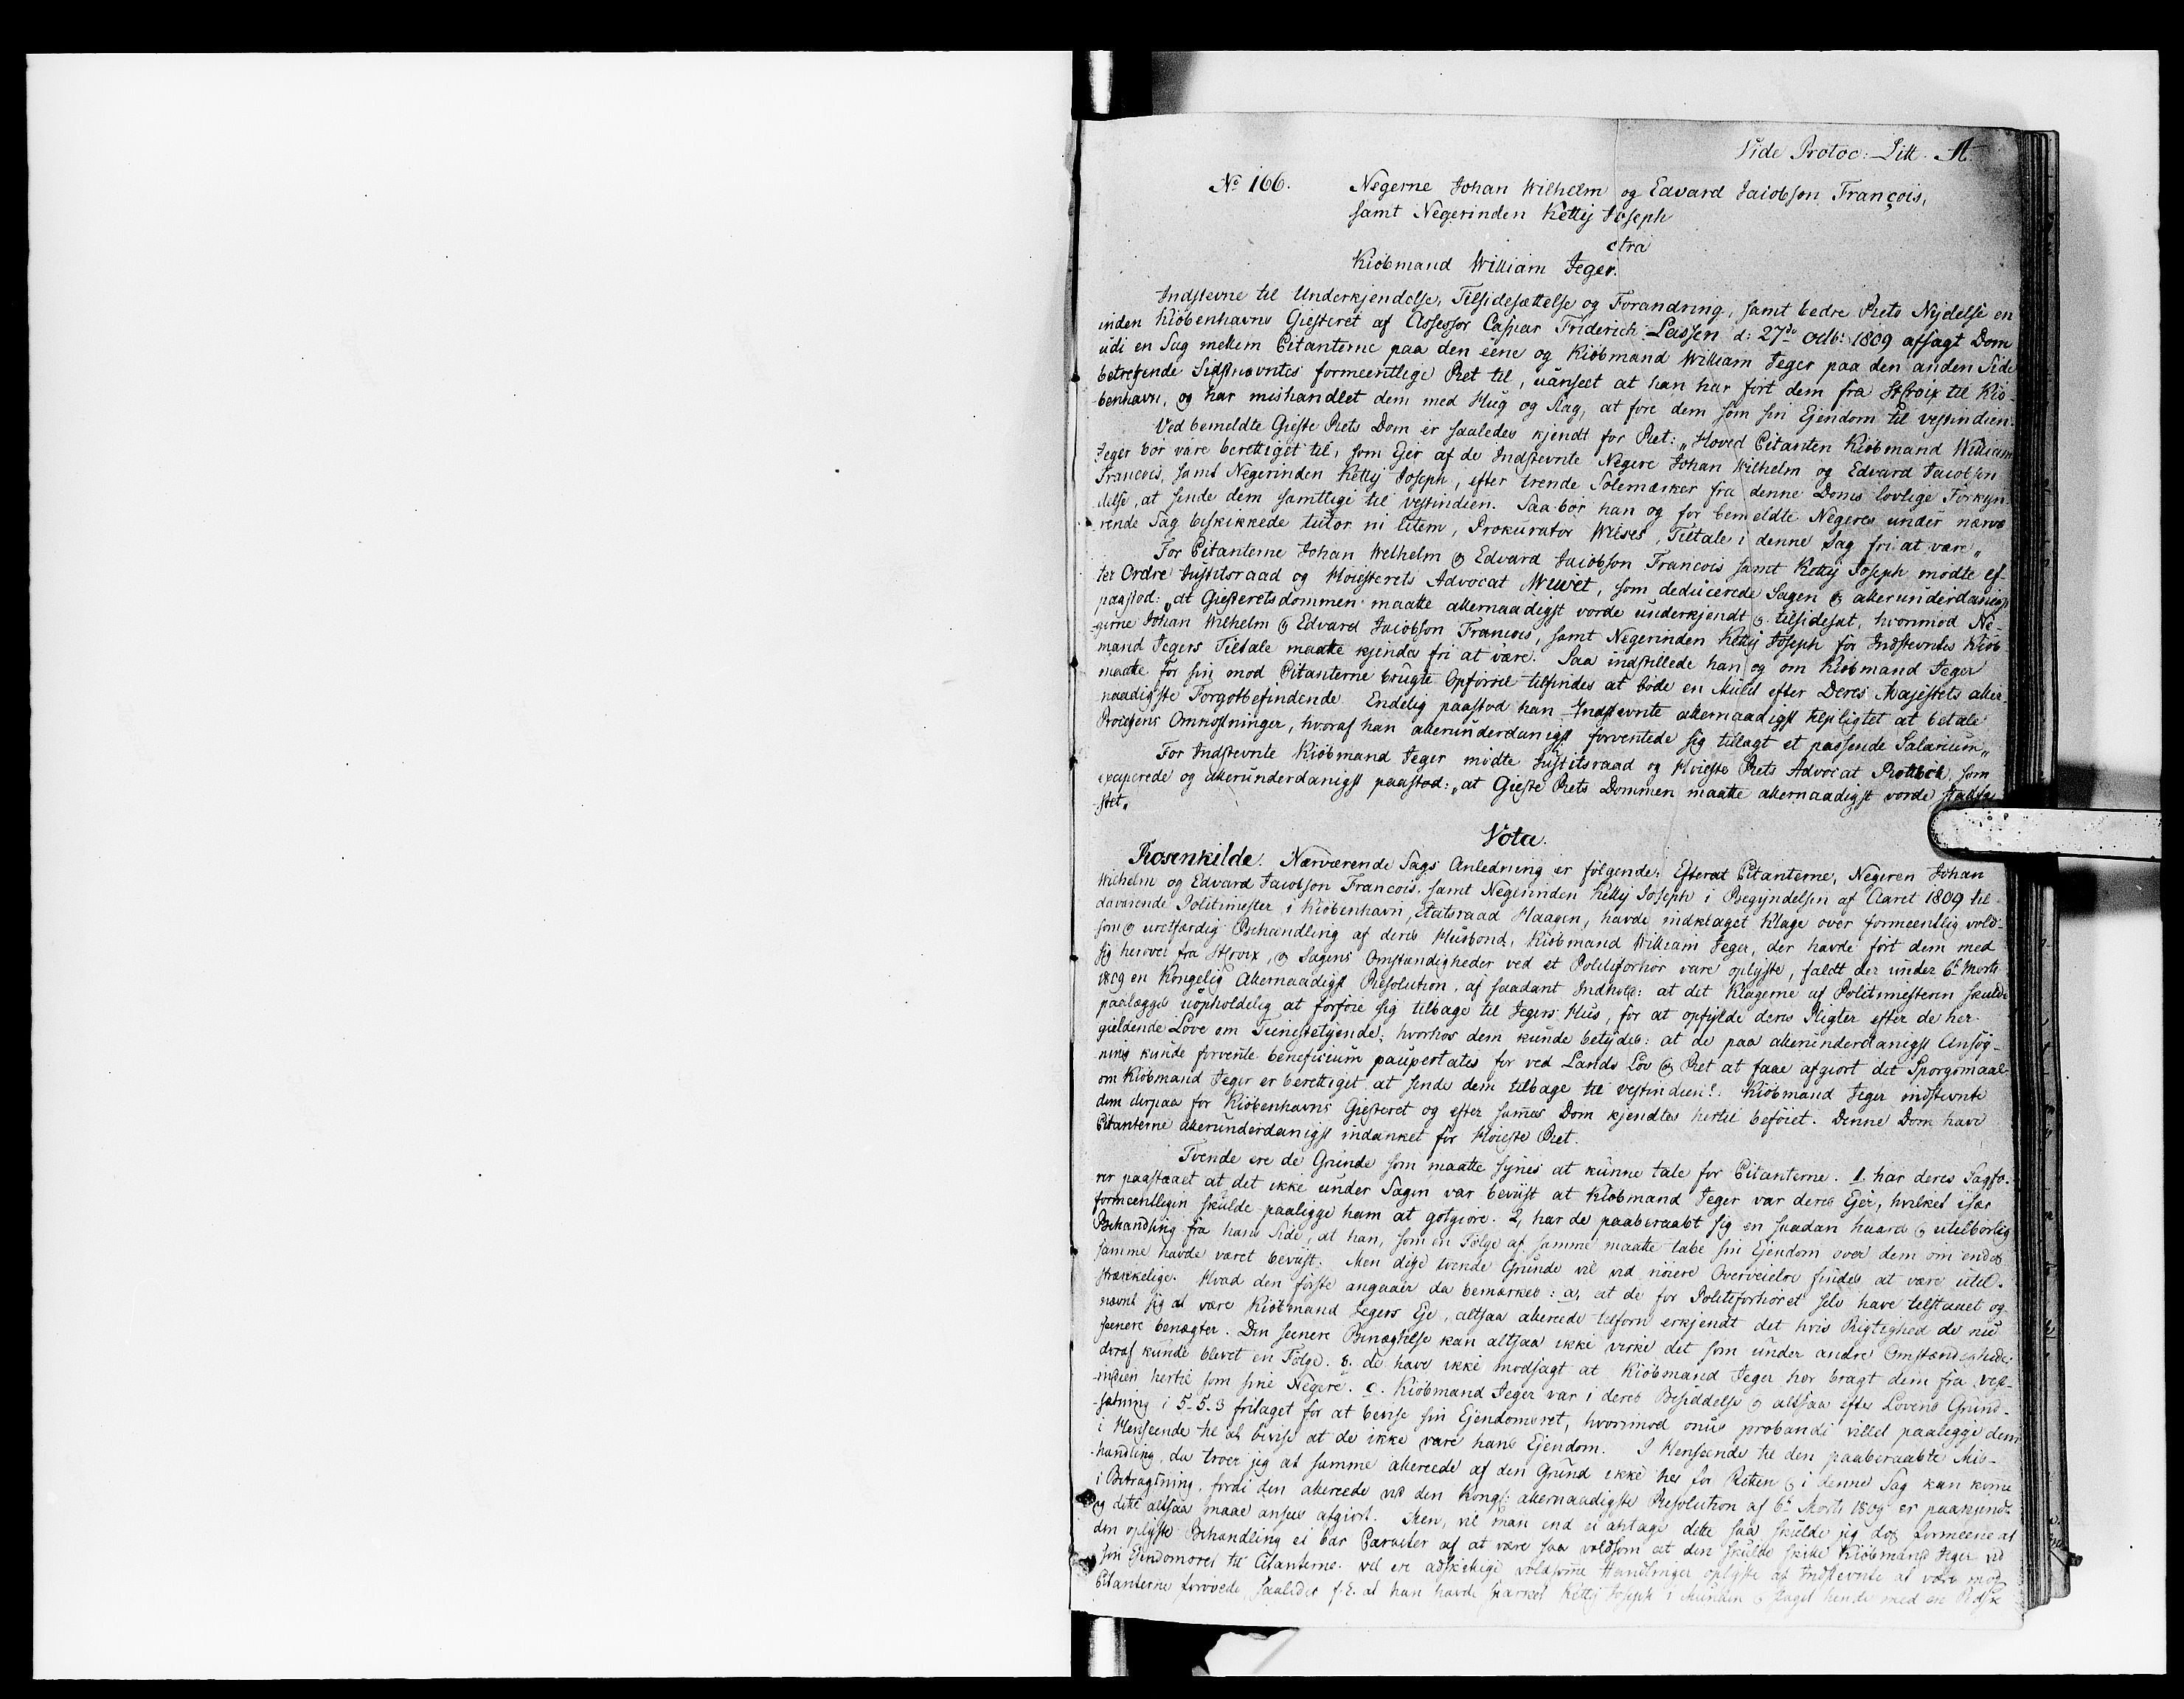 Vide Protoc: Litt. A.
No 166. Negerne Johan Wilhelm og Edvard Jaiobson François,
samt Negerinden Kettij Joseph
ctra
Kiöbmand William Jeger.
Indstevne til Underkjendelse, Tilsidesættelse og Forandring, samt bedre Rets Nydelse en
inden Kiöbenhavns Giesteret af Assessor Caspar Friderich Lassen d: 27de Octb: 1809 afsagt Dom
udi en Sag mellem Citanterne paa den eene og Kiöbmand William Jeger paa den anden Side
betrefende Sidstnævntes formeentlige Ret til, uanseet at han har fört dem fra St Croix til Kiö-
benhavn, og har mishandlet dem med Hug og Slag, at före dem som sin Ejendom til vestindien.
Ved bemeldte Gieste Rets Dom er saaledes kjendt for Ret: „Hoved Citanten Kiöbmand William
Jeger bör være berettiget til, som Ejer af de Indstevnte Negere Johan Wilhelm og Edvard Jacobson
Francois, samt Negerinden Kettij Joseph, efter trende Solemærker fra denne Doms lovlige Forkyn-
delse, at sende dem samtlige til vestindien. Saa bör han og for bemeldte Negeres under nærvæ
rende Sag beskikkede tutor ni litem, Prokurator Wilses, Tiltale i denne Sag fri at være„
For Citanterne Johan Welhelm & Edvard Jaiobson Francois samt Kettij Joseph mödte ef-
ter Ordre Justitsraad og Höiesterets Advocat Wiwet, som deducerede Sagen & allerunderdanigst
paastod: „at Giesteretsdommen maatte allernaadigst vorde underkjendt & tilsidesat, hvorimod Ne-
gerne Johan Wilhelm & Edvard Jaiobson Francois, samt Negerinden Kettij Joseph for Indstevntes Kiöb-
mand Jegers Tiltale maatte kjendes fri at være. Saa indstillede han og om Kiöbmand Jeger
maatte for sin mod Citanterne brugte Opförsel tilfindes at böde en Mulct efter Deres Majestets aller-
naadigste Forgotbefindende. Endelig paastod han Indstevnte allernaadigst tilpligtet at betale
Processens Omkostninger, hvoraf han allerunderdanigst forventede sig tillagt et passende Salarium„
For Indstevnte Kiöbmand Jeger mödte Justitsraad og Höieste Rets Advocat Rottböll, som
exciperede og allerunderdanigst paastod: „at Gieste Rets Dommen maatte allernaadigst vorde stadfæ-
stet„
Vota.
Rosenkilde. Nærværende Sags Anledning er fölgende: Efterat Citanterne, Negeren Johan
Wilhelm og Edvard Jacobson Francois, samt Negerinden Kettij Joseph i Begyndelsen af Aaret 1809 til
daværende Politimester i Kiöbenhavn, Etatsraad Haagen, havde indklaget Klage over formeentlig vold-
som & uretfærdig Behandling af deres Husbond, Kiöbmand William Jeger, der havde fört dem med
sig herover fra St Croix, & Sagens Omstændigheder ved et Politieforhör vare oplyste, faldt der under 6te Marts
1809 en Kongelig Allernaadigst Resolution, af saadant Indhold: at det Klagerne af Politimesteren skulde
paalægges uopholdelig at forföie sig tilbage til Jegers Huus, for at opfylde deres Pligter efter de her
gieldende Love om Tienestetyende; hvorhos dem kunde betydes: at de paa allerunderdanigst Ansög-
ning kunde forvente beneficium paupertates for ved Lands Lov & Ret at faae afgiort det Spörgsmaal
om Kiöbmand Jeger er berettiget at sende dem tilbage til vestindien? Kiöbmand Jeger indstevnte
dem derpaa for Kiöbenhavns Giesteret og efter sammes Dom kjendtes hertil beföiet. Denne Dom have
Citanterne allerunderdanigst indanket for Höieste Ret.
Tvende ere de Grunde som maatte synes at kunne tale for Citanterne. 1, har deres Sagfö-
rer paastaaet at det ikke under Sagen var beviist at Kiöbmand Jeger var deres Ejer, hvilket især
formeentligen skulde paaligge ham at gotgiöre. 2, har de paaberaabt sig en saadan haard & utilbörlig
Behandling fra hans Side, at han, som en Fölge af samme maatte tabe sin Ejendom over dem om endog
samme havde været beviist. Men disse tvende Grunde vil ved nöiere Overveielse findes at være util-
strækkelige. Hvad den förste angaaer da bemærkes: a, at de for Politieforhöret selv have tilstaaet og
nævnt sig at være Kiöbmand Jegers Eje, altsaa allereede tilforn erkjendt det hvis Rigtighed de nu
seenere benægter. Den seenere Benægtelse kan altsaa ikke virke det som under andre Omstændigheder
deraf kunde blevet en Fölge. b. de have ikke modsagt at Kiöbmand Jeger har bragt dem fra vest-
indien hertil som sine Negere. c. Kiöbmand Jeger var i deres Besiddelse & altsaa efter Lovens Grund-
sætning i 5-5-3 fritaget for at bevise sin Ejendomsret, hvorimod onus probandi vilde paaligge dem
i Henseende til at bevise at de ikke vare hans Ejendom. I Henseende til den paaberaabte Mis-
handling, da troer jeg at samme allereede af den Grund ikke her for Retten & i denne Sag kan komme
i Betragtning, fordi den allereede ved den Kongl: allernaadigste Resolution af 6te Marts 1809 er paakjendt
og dette altsaa maae ansees afgiort. Men, vil man end ei antage dette saa skulde jeg dog formeene at
den oplyste Behandling ei bar Caracter af at være saa voldsom at den skulde skille Kiöbmand Jeger ved
sin Ejendomsret til Citanterne. vel ere adskillige voldsomme Handlinger oplyste af Indstevnte at være mod
Citanterne forövede, saaledes f.E. at han havde sparket Kettij Joseph i Munden & slaget hende med en Pidsk